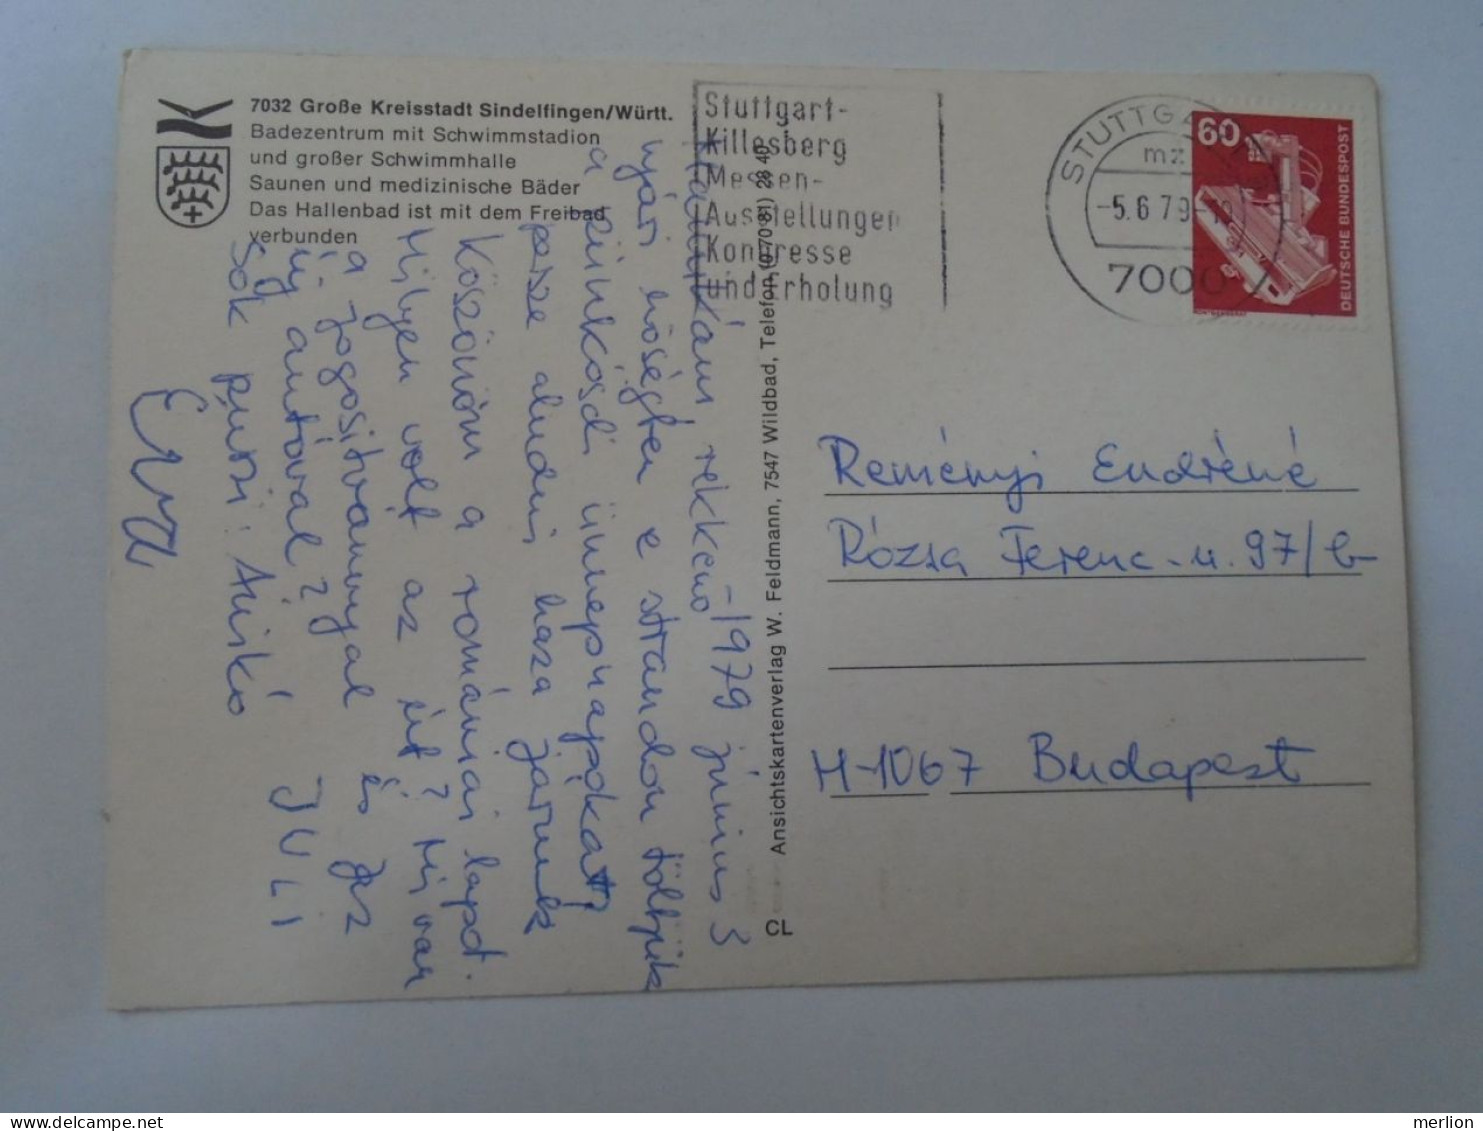 7032 Große Kreisstadt Sindelfingen/Württ.
Badezentrum mit Schwimmstadion
und großer Schwimmhalle
Saunen und medizinische Bäder
Das Hallenbad ist mit dem Freibad
verbunden
Stuttgart-
Killesberg
Messen-
Ausstellungen
Kongresse
und Erholung
STUTTGA
mz
-5.6.79-
7000
60
DEUTSCHE BUNDESPOST
1979 június 3
rekkenő
nyári hőségben a strandon töltjük
a pünkösdi ünnepnapokat,
persze aludni haza járunk
Köszönöm a romániai lapot.
Milyen volt az út? Mi van
a jogositvannyal és az
új autóval?
Sok puszi: Anikó
JULI
Erzsi
CL
Ansichtskartenverlag W. Feldmann, 7547 Wildbad, Telefon (0 70 81) 28 40
Reményi Endréné
Rózsa Ferenc-u. 97/b
H-1067 Budapest
merlion
delcampe.net